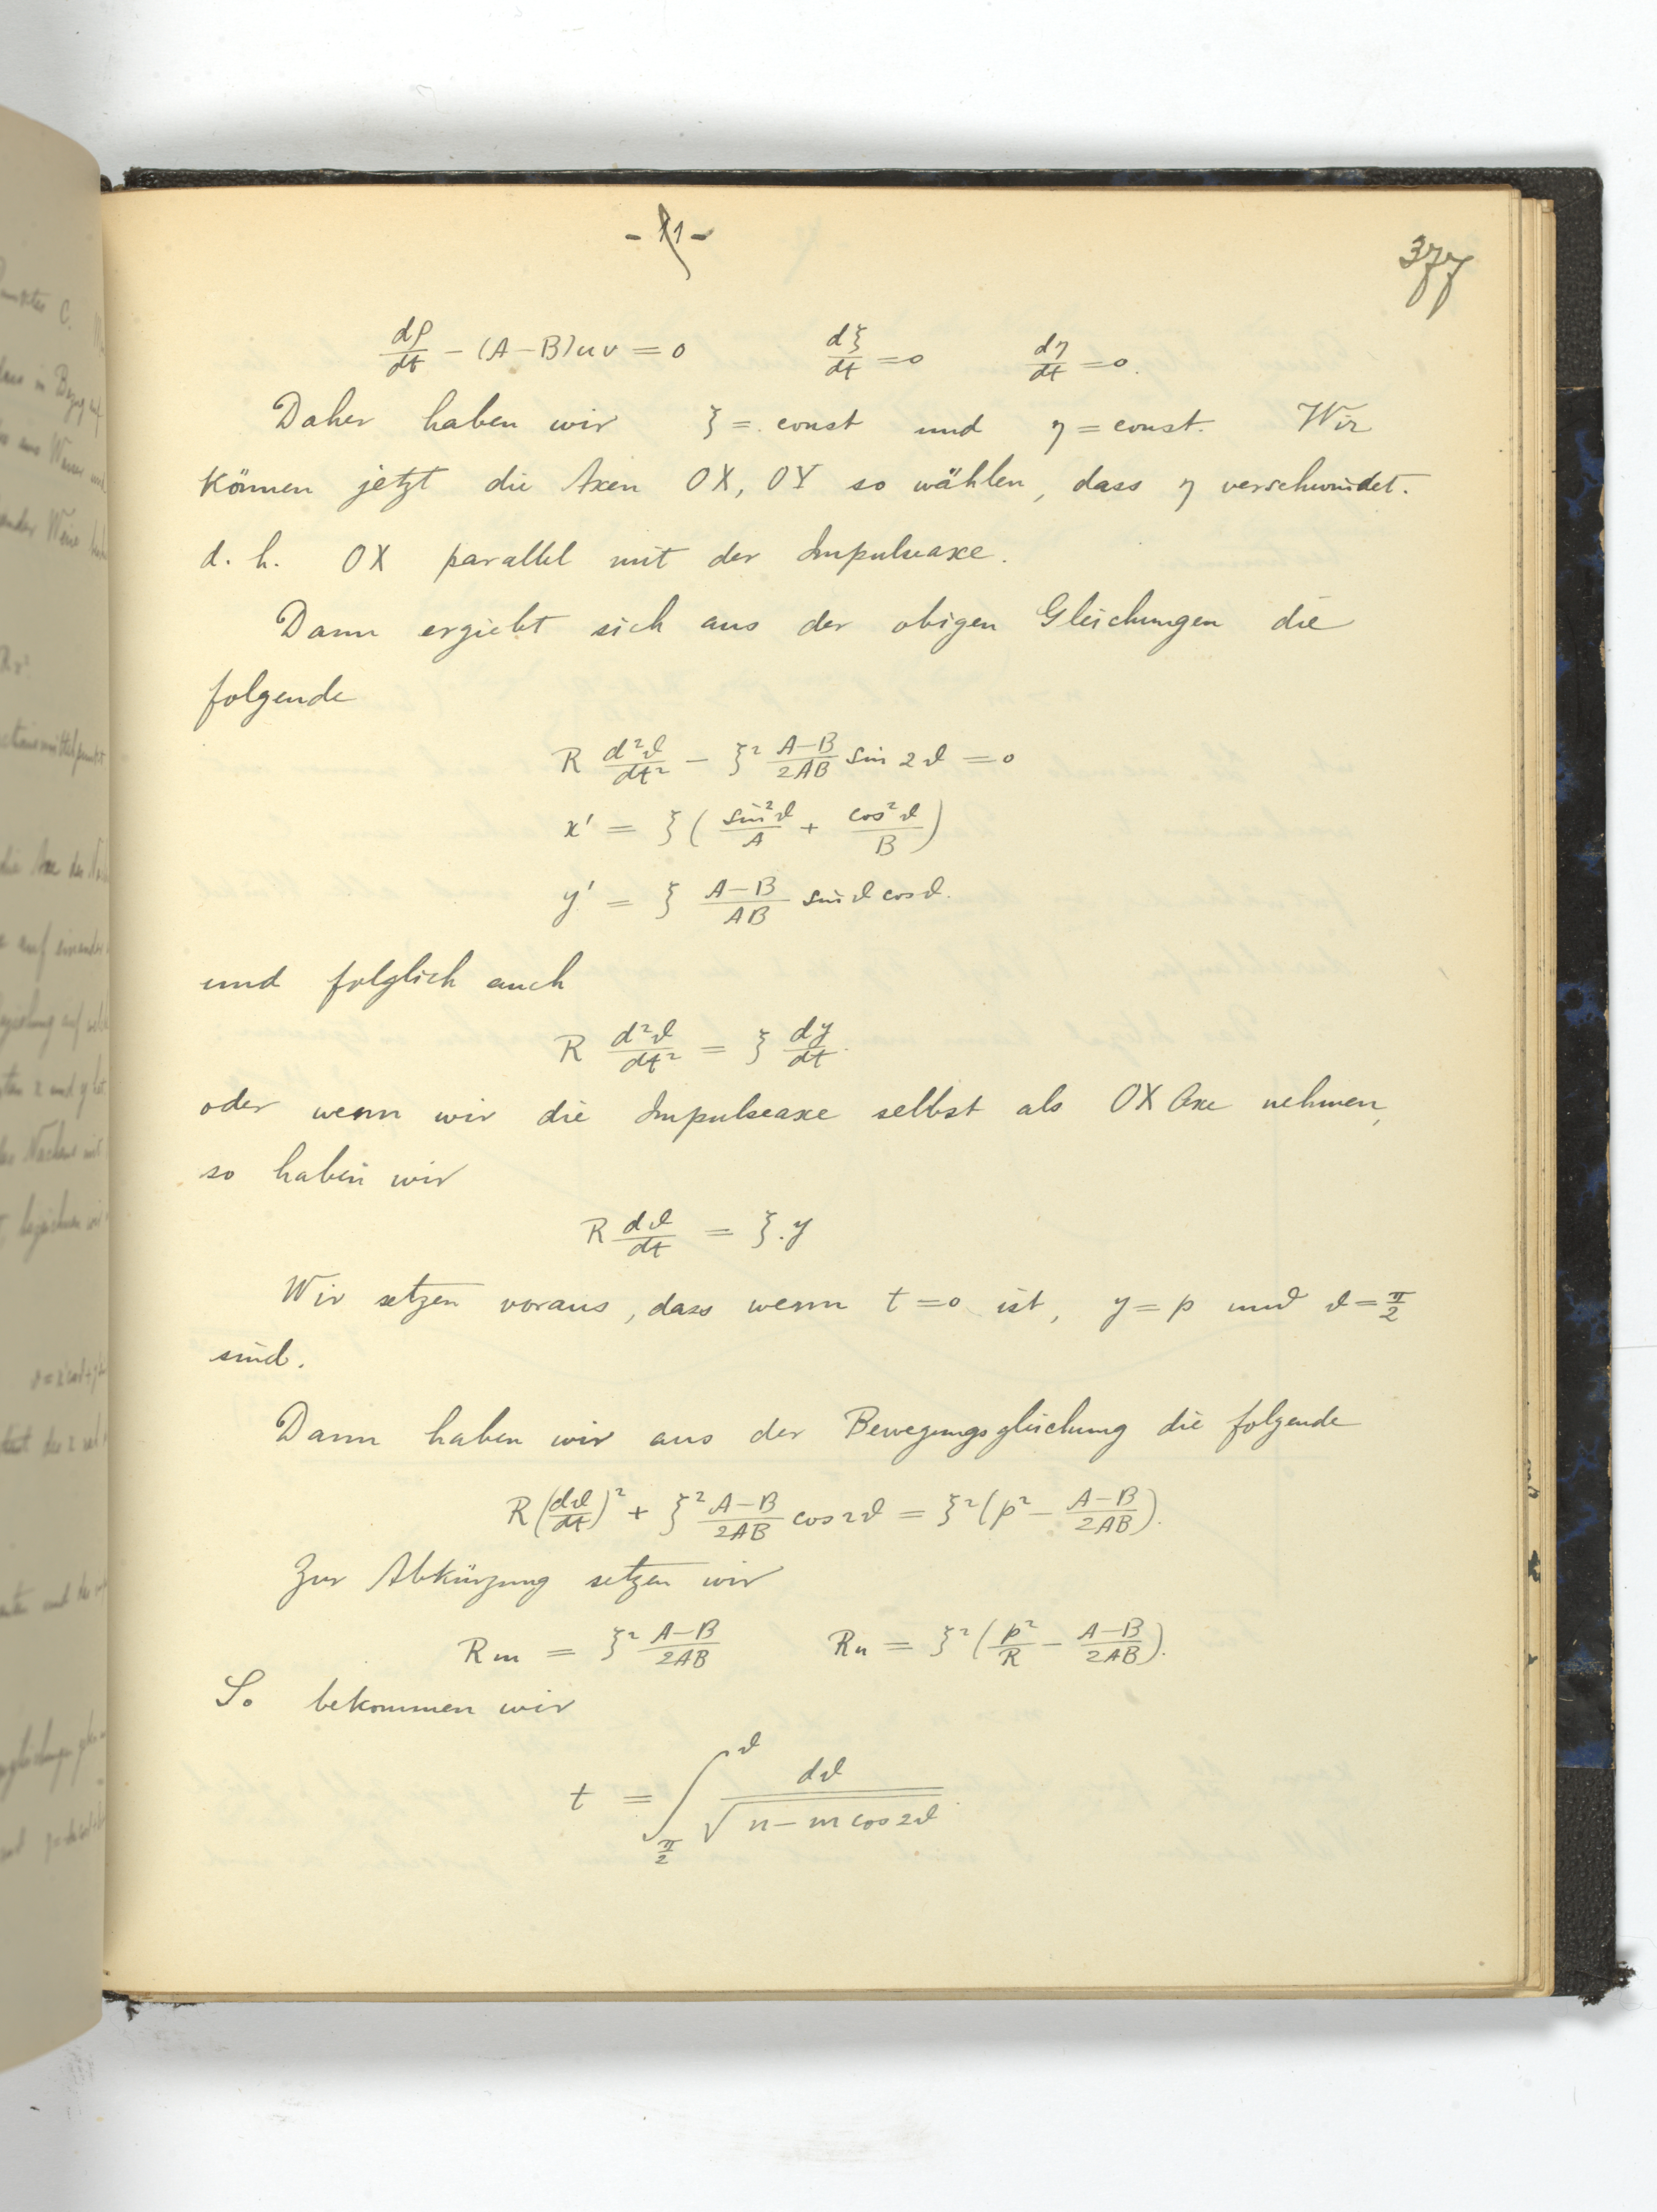 377
dρ/dt − (A−B)uv = 0 dξ/dt = 0 dη/dt = 0.
Daher haben wir ξ = const und η = const. Wir
können jetzt die Axen OX, OY so wählen, dass η verschwindet.
d. h. OX parallel mit der Impulseaxe.
Dann ergiebt sich aus der obigen Gleichungen die
folgende
R d²ϑ/dt² − ξ² (A−B)/2AB sin 2ϑ = 0
x' = ξ ( sin²ϑ/A + cos²ϑ/B )
y' = ξ (A−B)/AB sinϑ cosϑ.
und folglich auch
R d²ϑ/dt² = ξ dy/dt.
oder wenn wir die Impulseaxe selbst als OX Axe nehmen,
so haben wir
R dϑ/dt = ξ.y
Wir setzen voraus, dass wenn t = 0 ist, y = p und ϑ = π/2
sind.
Dann haben wir aus der Bewegungsgleichung die folgende
R (dϑ/dt)² + ξ² (A−B)/2AB cos 2ϑ = ξ² (p² − (A−B)/2AB).
Zur Abkürzung setzen wir
Rm = ξ² (A−B)/2AB Rn = ξ² (p²/R − (A−B)/2AB).
So bekommen wir
t = ∫_{π/2}^{ϑ} dϑ / √(n − m cos 2ϑ)